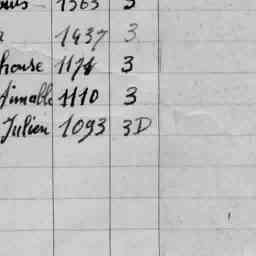 1363 3
1937 3
house 1174 3
Aimable 1110 3
Julien 1093 3D